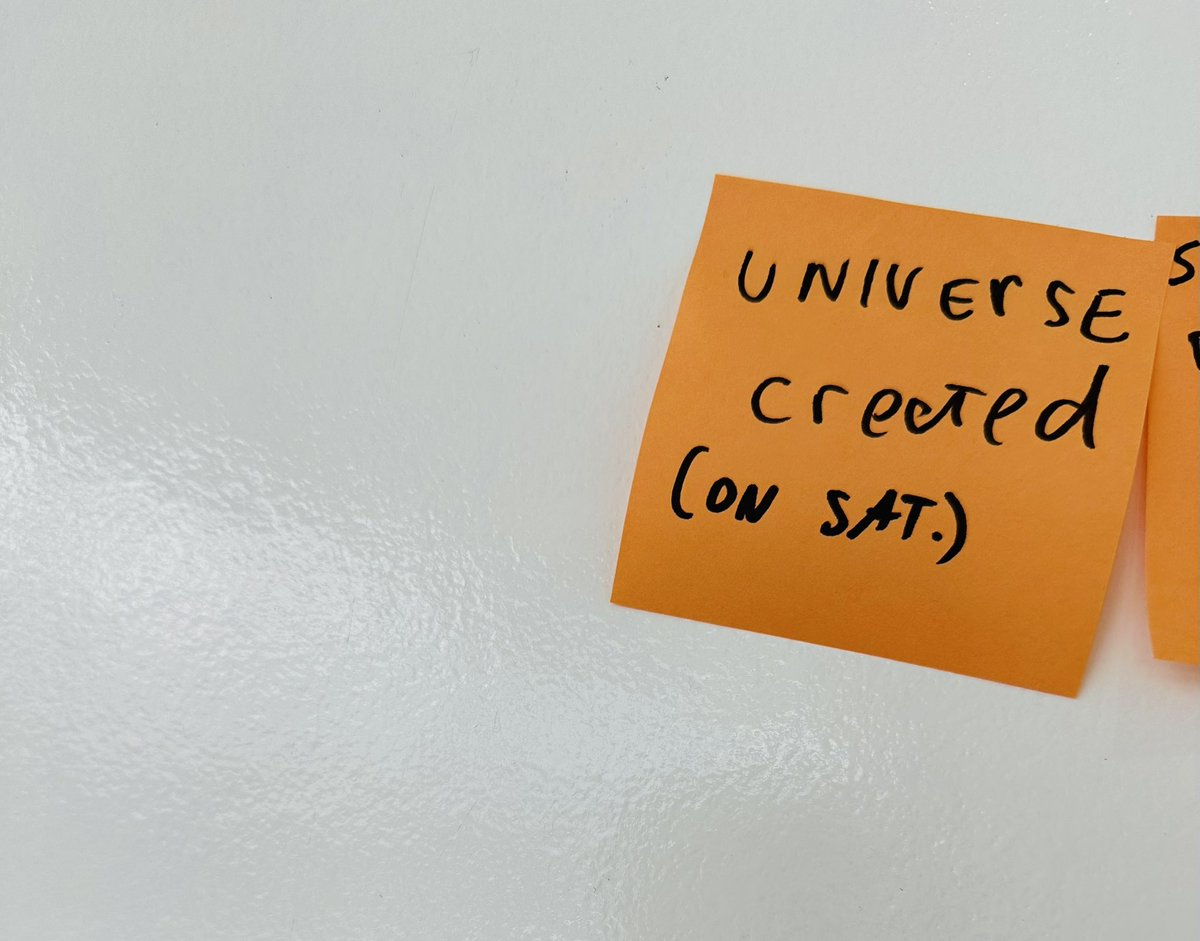 UNIVErSE
created
(ON SAT.)